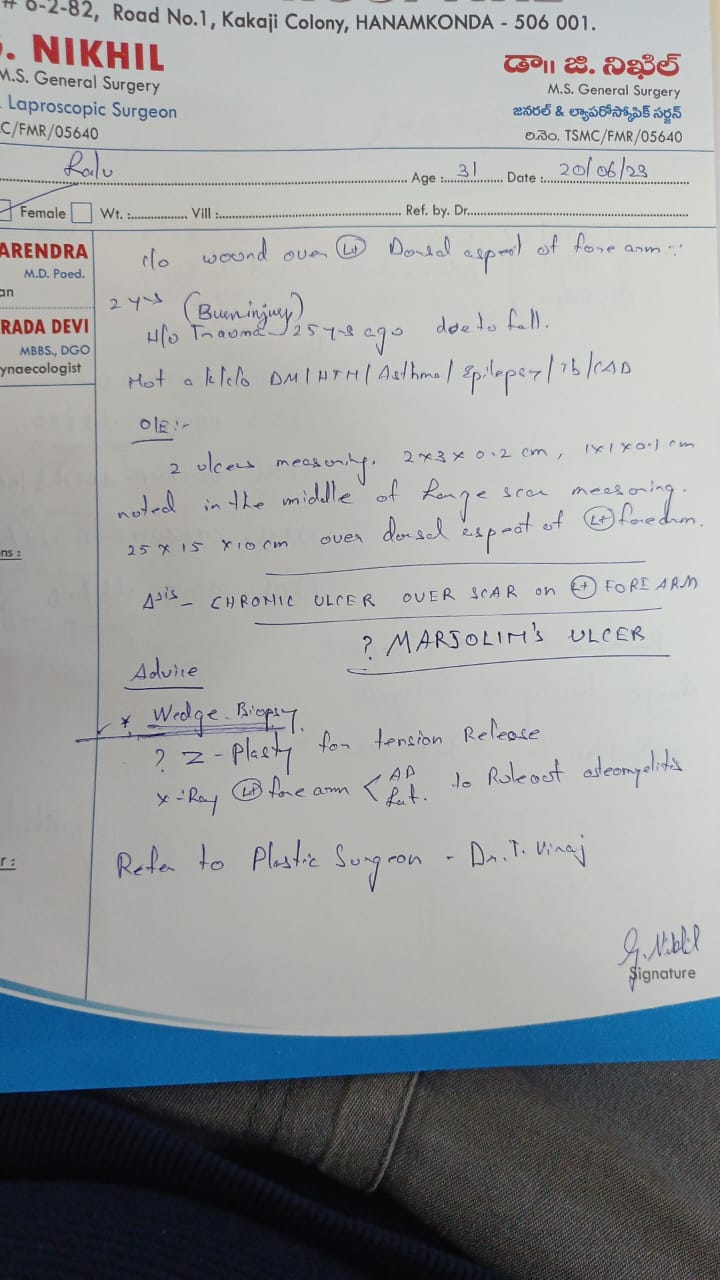 # 6-2-82, Road No.1, Kakaji Colony, HANAMKONDA - 506 001.
. NIKHIL
M.S. General Surgery
Laproscopic Surgeon
C/FMR/05640
డా॥ జి. నిఖిల్
M.S. General Surgery
జనరల్ & ల్యాపరోస్కోపిక్ సర్జన్
రి.నెం. TSMC/FMR/05640
Age : 31 Date : 20/06/23
Female Wt.: Vill : Ref. by. Dr.
ARENDRA
M.D. Paed.
an
RADA DEVI
MBBS., DGO
ynaecologist
ns :
r :
c/o wound over (Lt) Dorsal aspect of fore arm :
2 yrs (Burn injury)
H/o Trauma 25 yrs ago due to fall.
Not a k/c/o DM/HTN/Asthma/Epilepsy/Tb/CAD
O/E :-
2 ulcers measuring. 2x3x0.2 cm, 1x1x0.1 cm
noted in the middle of large scar measuring.
25 x 15 x 10 cm over dorsal aspect of (Lt) forearm.
CHRONIC ULCER OVER SCAR on (Lt) FORE ARM
? MARJOLIN'S ULCER
Advice
* Wedge. Biopsy.
? Z - Plasty for tension Release
X-Ray (Lt) fore arm < AP Lat. to Rule out osteomyelitis
Refer to Plastic Surgeon - Dr. T. Viraj
G. Nikhil
Signature